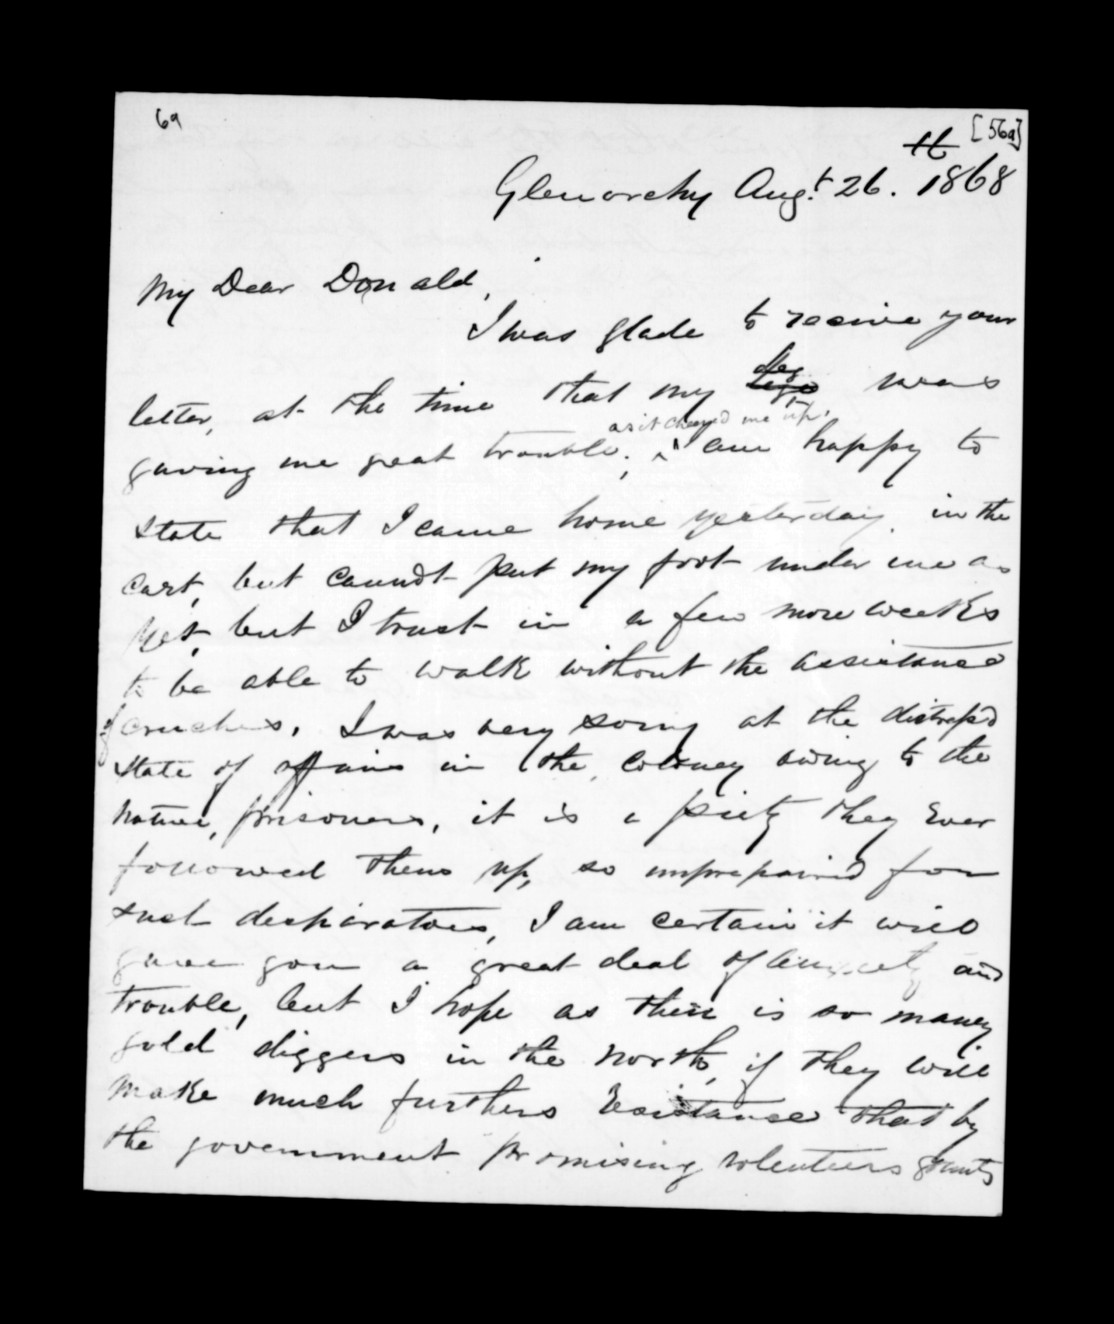 69
[569]
16
Glenorchy Augt. 26. 1868
My Dear Donald,
I was glade to receive your
letter, at the time that my leg was
as it cheeyed me up,
gaving me great trouble; I am happy to
state that I came home yesterday, in the
cart, but cannot put my foot under me as
yet, but I trust in a few more weeks
to be able to walk without the assistance
of cruches. I was very sorry at the distrap'd
state of affairs in the coloney owing to the
native prisoners, it is a piety they ever
followed them up, so unprepaired for
such desparatoes, I am certain it will
gave you a great deal of anxiety and
trouble, but I hope as their is so maney
gold diggers in the North, if they will
make much furthers resistance that by
the government promising volenteers grants